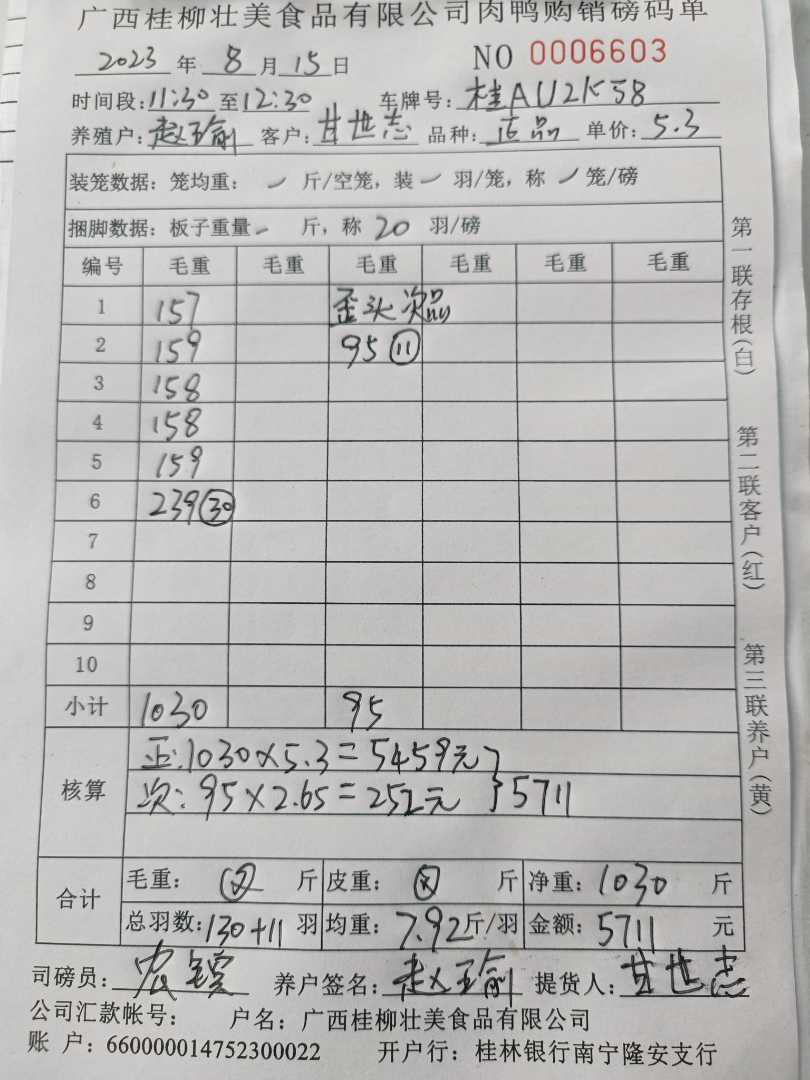 广西桂柳壮美食品有限公司肉鸭购销磅码单
2023 年 8 月 15 日 NO 0006603
时间段: 11:30 至 12:30 车牌号: 桂AU2K58
养殖户: 赵玉瑜 客户: 甘世志 品种: 正品 单价: 5.3
装笼数据: 笼均重: / 斤/空笼, 装 / 羽/笼, 称 / 笼/磅
捆脚数据: 板子重量 - 斤, 称 20 羽/磅
编号 毛重 毛重 毛重 毛重 毛重 毛重
1 157 歪头次品
2 159 95 ⑪
3 158
4 158
5 159
6 239 ㉚
7
8
9
10
小计 1030 95
核算
正: 1030×5.3=5459元
次: 95×2.65=252元 } 5711
合计
毛重: 斤 皮重: 斤 净重: 1030 斤
总羽数: 130+11 羽 均重: 7.92 斤/羽 金额: 5711 元
司磅员: 养户签名: 赵玉瑜 提货人: 甘世志
公司汇款帐号: 户名: 广西桂柳壮美食品有限公司
账 户: 660000014752300022 开户行: 桂林银行南宁隆安支行
第一联存根(白)
第二联客户(红)
第三联养户(黄)